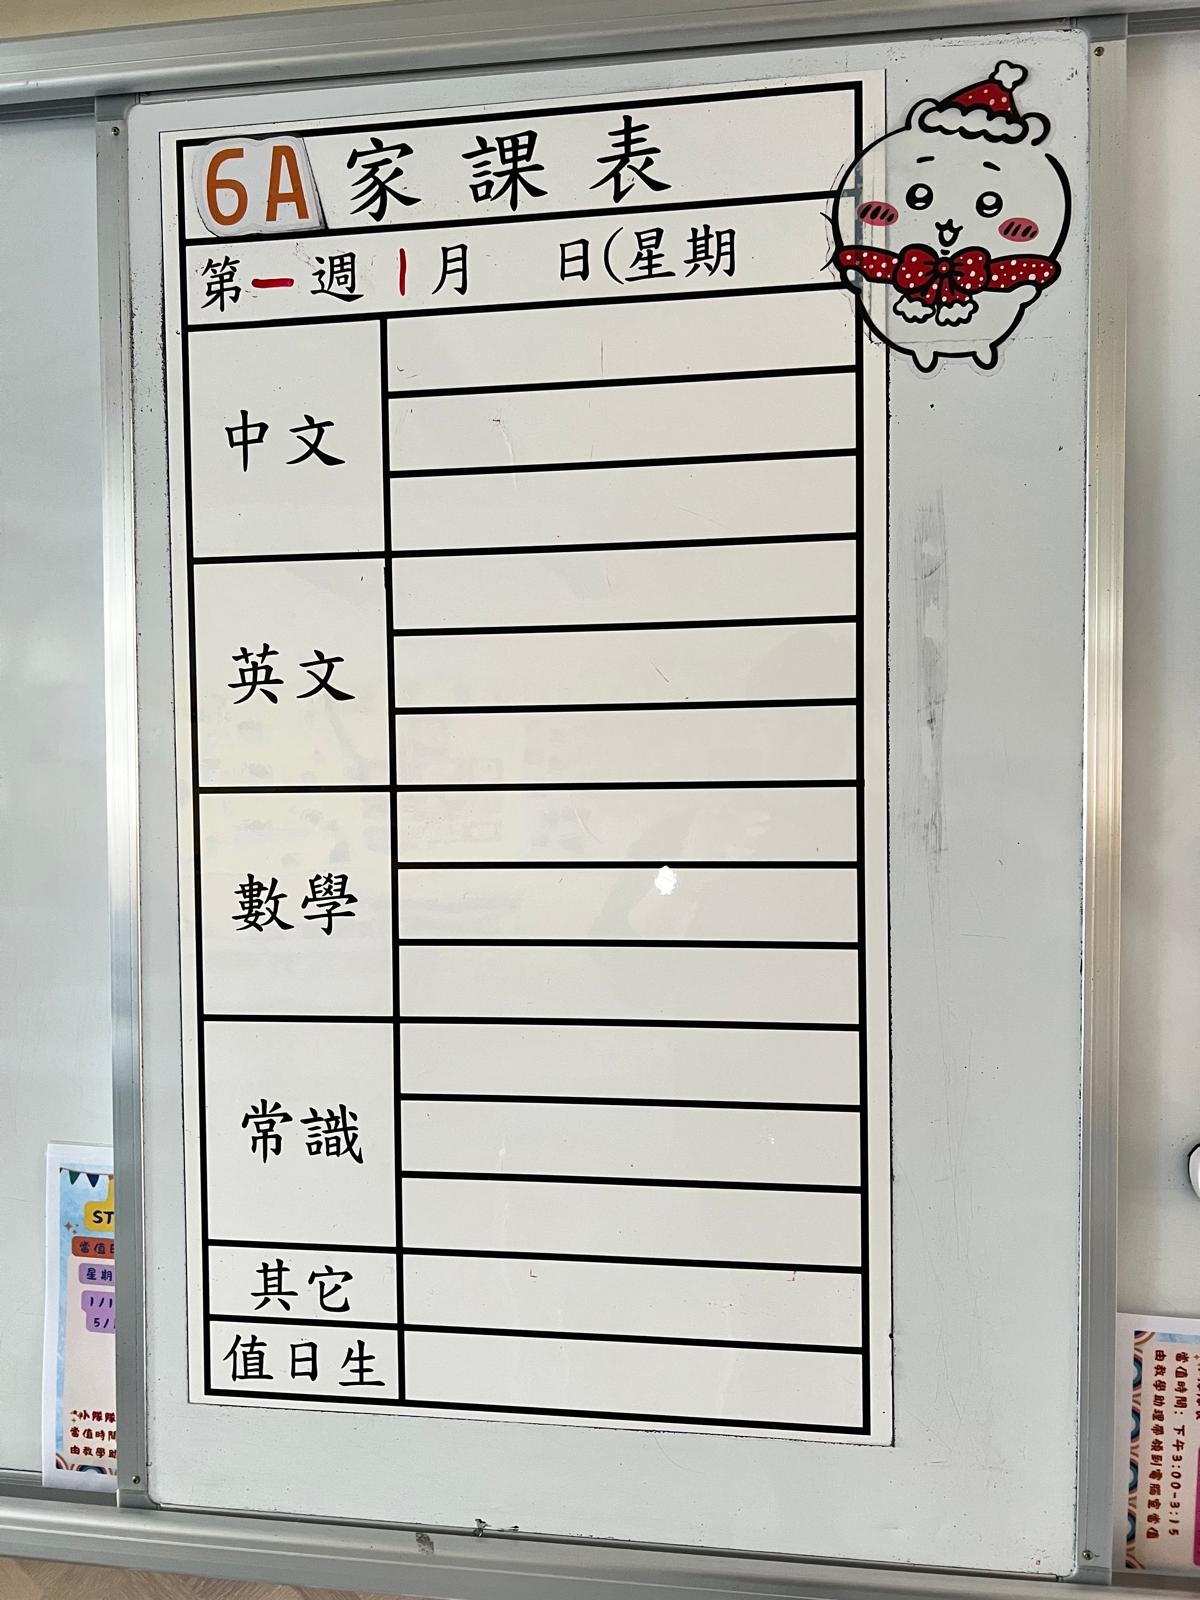 6A家課表
第一週 1月 日(星期 )
中文
英文
數學
常識
其它
值日生
ST
當值日
星期
1/1
5/
小隊隊
當值時間
由教學助
當值時間：下午3:00-3:15
由教學助理帶領到電腦室當值